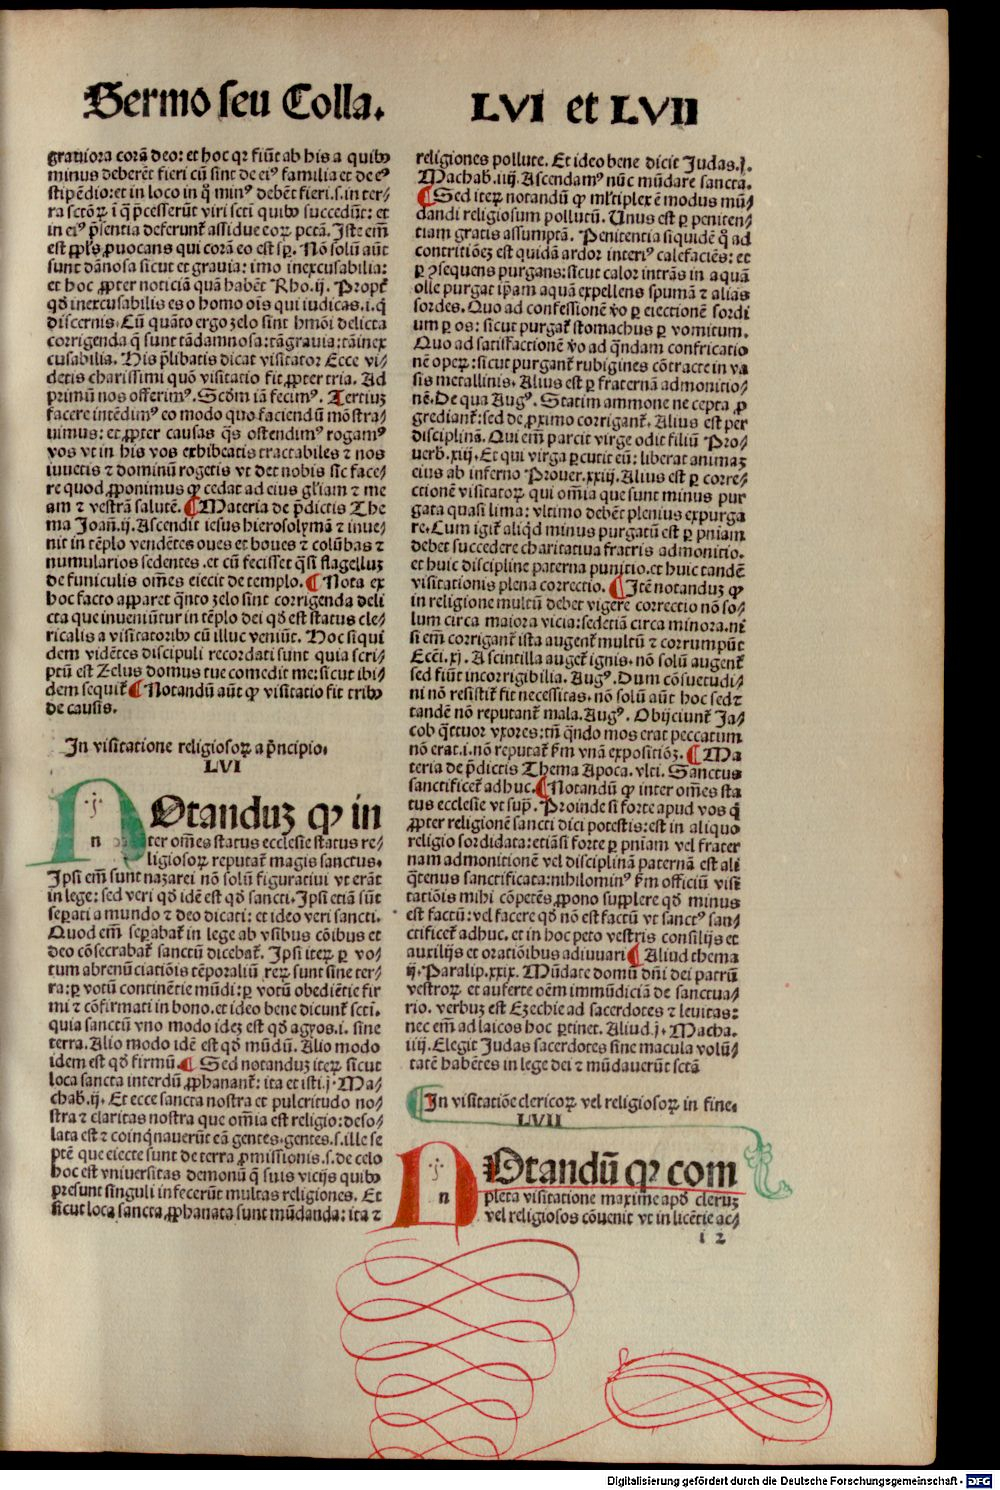 Sermo seu Colla.
LVI et LVII
grauiora corā deo: et hoc qꝛ fiūt ab his a quibꝰ
minus deberēt fieri cū sint de eiꝰ familia et de eꝰ
stipēdio: et in loco in q̊ minꝰ debēt fieri .s. in ter⸗
ra sctōꝝ ī q̄ p̄cesserūt viri scti quibꝰ succedūt: et
in eiꝰ p̄sentia deferunt᷑ assidue eoꝝ pctā. Iste em̄
est ꝓpl's ꝓuocans qui corā eo est sꝑ. Nō solū aūt
sunt dānosa sicut et grauia: imo inexcusabilia:
et hoc ꝓpter noticiā quā habēt Rho. ij. Propt᷑
qd̄ inexcusabilis es o homo oīs qui iudicas .i. q̄
discernis. Cū quāto ergo zelo sint hmōi delicta
corrigenda q̄ sunt tā damnosa: tā grauia: tā inex
cusabilia. His p̄libatis dicat visitator Ecce vi⸗
detis charissimi quō visitatio fit ꝓpter tria. Ad
primū nos offerimꝰ. Scd̄m iā fecimꝰ. Tertiuꝫ
facere intēdimꝰ eo modo quo faciendū mōstra⸗
uimus: et ꝓpter causas q̄s ostendimꝰ rogamꝰ
vos vt in his vos exhibeatis tractabiles ⁊ nos
iuuetis ⁊ dominū rogetis vt det nobis sic face⸗
re quod ꝓponimus ꝙ cedat ad eius gl'iam ⁊ me
am ⁊ vestrā salutē. ¶ Materia de p̄dictis The
ma Joan̄. ij. Ascendit iesus hierosolymā ⁊ inue⸗
nit in tēplo vendētes oues et boues ⁊ colūbas ⁊
numularios sedentes. et cū fecisset q̄si flagelluꝫ
de funiculis om̄es eiecit de templo. ¶ Nota ex
hoc facto apparet q̄nto zelo sint corrigenda deli
cta que inueniūtur in tēplo dei qd̄ est status cle⸗
ricalis a visitatoribꝰ cū illuc veniūt. Hoc siqui
dem vidētes discipuli recordati sunt quia scri⸗
ptū est Zelus domus tue comedit me: sicut ibi⸗
dem sequit᷑ ¶ Notandū aūt ꝙ visitatio fit tribꝰ
de causis.
In visitatione religiosoꝝ a p̄ncipio.
LVI
NOtanduꝫ ꝙ in
ter om̄es status ecclesie status re⸗
ligiosoꝝ reputat᷑ magis sanctus.
Ipsi em̄ sunt nazarei nō solū figuratiui vt erāt
in lege: sed veri qd̄ idē est qd̄ sancti. Ipsi etiā sūt
seꝑati a mundo ⁊ deo dicati: et ideo veri sancti.
Quod em̄ seꝑabat᷑ in lege ab vsibus cōibus et
deo cōsecrabat᷑ sanctū dicebat᷑. Ipsi iteꝝ ꝑ vo⸗
tum abrenūciatiōis tēporaliū reꝝ sunt sine ter⸗
ra: ꝑ votū continētie mūdi: ꝑ votū obediētie fir
mi ⁊ cōfirmati in bono. et ideo bene dicunt᷑ scti.
quia sanctū vno modo ideꝫ est qd̄ agyos .i. sine
terra. Alio modo idē est qd̄ mūdū. Alio modo
idem est qd̄ firmū. ¶ Sed notanduꝫ iteꝝ sicut
loca sancta interdū ꝓphanant᷑: ita et isti. j. Ma⸗
chab. ij. Et ecce sancta nostra et pulcritudo no⸗
stra ⁊ claritas nostra que om̄ia est religio: deso⸗
lata est ⁊ coinq̄nauerūt eā gentes. gentes .s. ille se
ptē que eiecte sunt de terra ꝓmissionis .s. de celo
hoc est vniuersitas demonū q̄ suis vicijs quibꝰ
presunt singuli infecerūt multas religiones. Et
sicut loca sancta ꝓphanata sunt mūdanda: ita ⁊
religiones pollute. Et ideo bene dicit Judas .j.
Machab. iiij. Ascendamꝰ nūc mūdare sancta.
¶ Sed iteꝝ notandū ꝙ ml'tiplex ē modus mū⸗
dandi religiosum pollutū. Unus est ꝑ peniten⸗
tiam gratis assumptā. Penitentia siquidē q̊ ad
contritiōeꝫ est quidā ardor interiꝰ calefaciēs: et
ꝑ ꝯsequens purgans: sicut calor intrās in aquā
olle purgat ip̄am aquā expellens spumā ⁊ alias
sordes. Quo ad confessionē v̊o ꝑ eiectionē sordi
um ꝑ os: sicut purgat᷑ stomachus ꝑ vomitum.
Quo ad satisfactionē v̊o ad q̄ndam confricatio
nē opeꝝ: sicut purgant᷑ rubigines cōtracte in va
sis metallinis. Alius est ꝑ fraternā admonitio⸗
nē. De qua Augꝰ. Statim ammone ne cepta ꝓ
grediant᷑: sed de ꝓximo corrigant᷑. Alius est per
disciplinā. Qui em̄ parcit virge odit filiū Pro⸗
uerb. xiij. Et qui virga ꝑcutit eū: liberat animaꝫ
eius ab inferno Prouer. xxiij. Alius est ꝑ corre⸗
ctionē visitatoꝝ qui om̄ia que sunt minus pur
gata quasi lima: vltimo debēt plenius expurga
re. Cum igit᷑ aliqd̄ minus purgatū est ꝑ pn̄iam
debet succedere charitatiua fratris admonitio.
et huic discipline paterna punitio. et huic tandē
visitationis plena correctio. ¶ Itē notanduꝫ ꝙ
in religione multū debet vigere correctio nō so⸗
lum circa maiora vicia: sed etiā circa minora. ni
si em̄ corrigant᷑ ista augent᷑ multū ⁊ corrumpūt
Ecci. xj. A scintilla auget᷑ ignis. nō solū augent᷑
sed fiūt incorrigibilia. Augꝰ. Dum cōsuetudi⸗
ni nō resistit᷑ fit necessitas. nō solū aūt hoc sed ⁊
tandē nō reputant᷑ mala. Augꝰ. Obijciunt᷑ Ja⸗
cob q̄ttuor vxores: tn̄ q̄ndo mos erat peccatum
nō erat .i. nō reputat᷑ ẜm vnā expositiōꝫ. ¶ Ma
teria de p̄dictis Thema Apoca. vlti. Sanctus
sanctificet᷑ adhuc. ¶ Notandū ꝙ inter om̄es sta
tus ecclesie vt sup̄. Proinde si forte apud vos q̄
ꝓpter religionē sancti dici potestis: est in aliquo
religio sordidata: etiāsi forte ꝑ pn̄iam vel frater
nam admonitionē vel disciplinā paternā est ali
q̄tenus sanctificata: nihilominꝰ ẜm officiū visi⸗
tatiōis mihi cōpetēs ꝓpono supplere qd̄ minus
est factū: vel facere qd̄ nō est factū vt sanctꝰ san⸗
ctificet᷑ adhuc. et in hoc peto vestris consilijs et
auxilijs et oratiōibus adiuuari ¶ Aliud thema
ij. Paralip. xxix. Mūdate domū dn̄i dei patrū
vestroꝝ et auferte oēm immūdiciā de sanctua⸗
rio. verbuꝫ est Ezechie ad sacerdotes ⁊ leuitas:
nec em̄ ad laicos hoc ꝑtinet. Aliud .j. Macha.
iiij. Elegit Judas sacerdotes sine macula volū⸗
tatē habētes in lege dei ⁊ mūdauerūt sctā
¶ In visitatiōe clericoꝝ vel religiosoꝝ in fine.
LVII
NOtandū ꝙ com
pleta visitatione maxime apd̄ cleruꝫ
vel religiosos cōuenit vt in licētie ac⸗
i 2
Digitalisierung gefördert durch die Deutsche Forschungsgemeinschaft - DFG